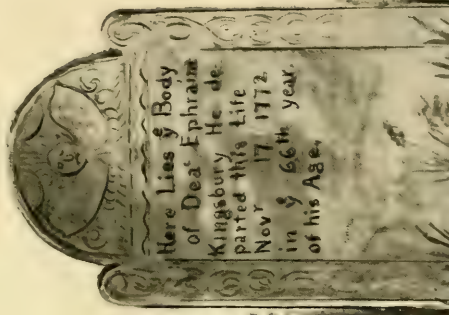 Here Lies yͤ Body
of Deaᶜ Ephraim
Kingsbury He de
parted this Life
Novr 17 1772
in yͤ 66th year
of his Age.